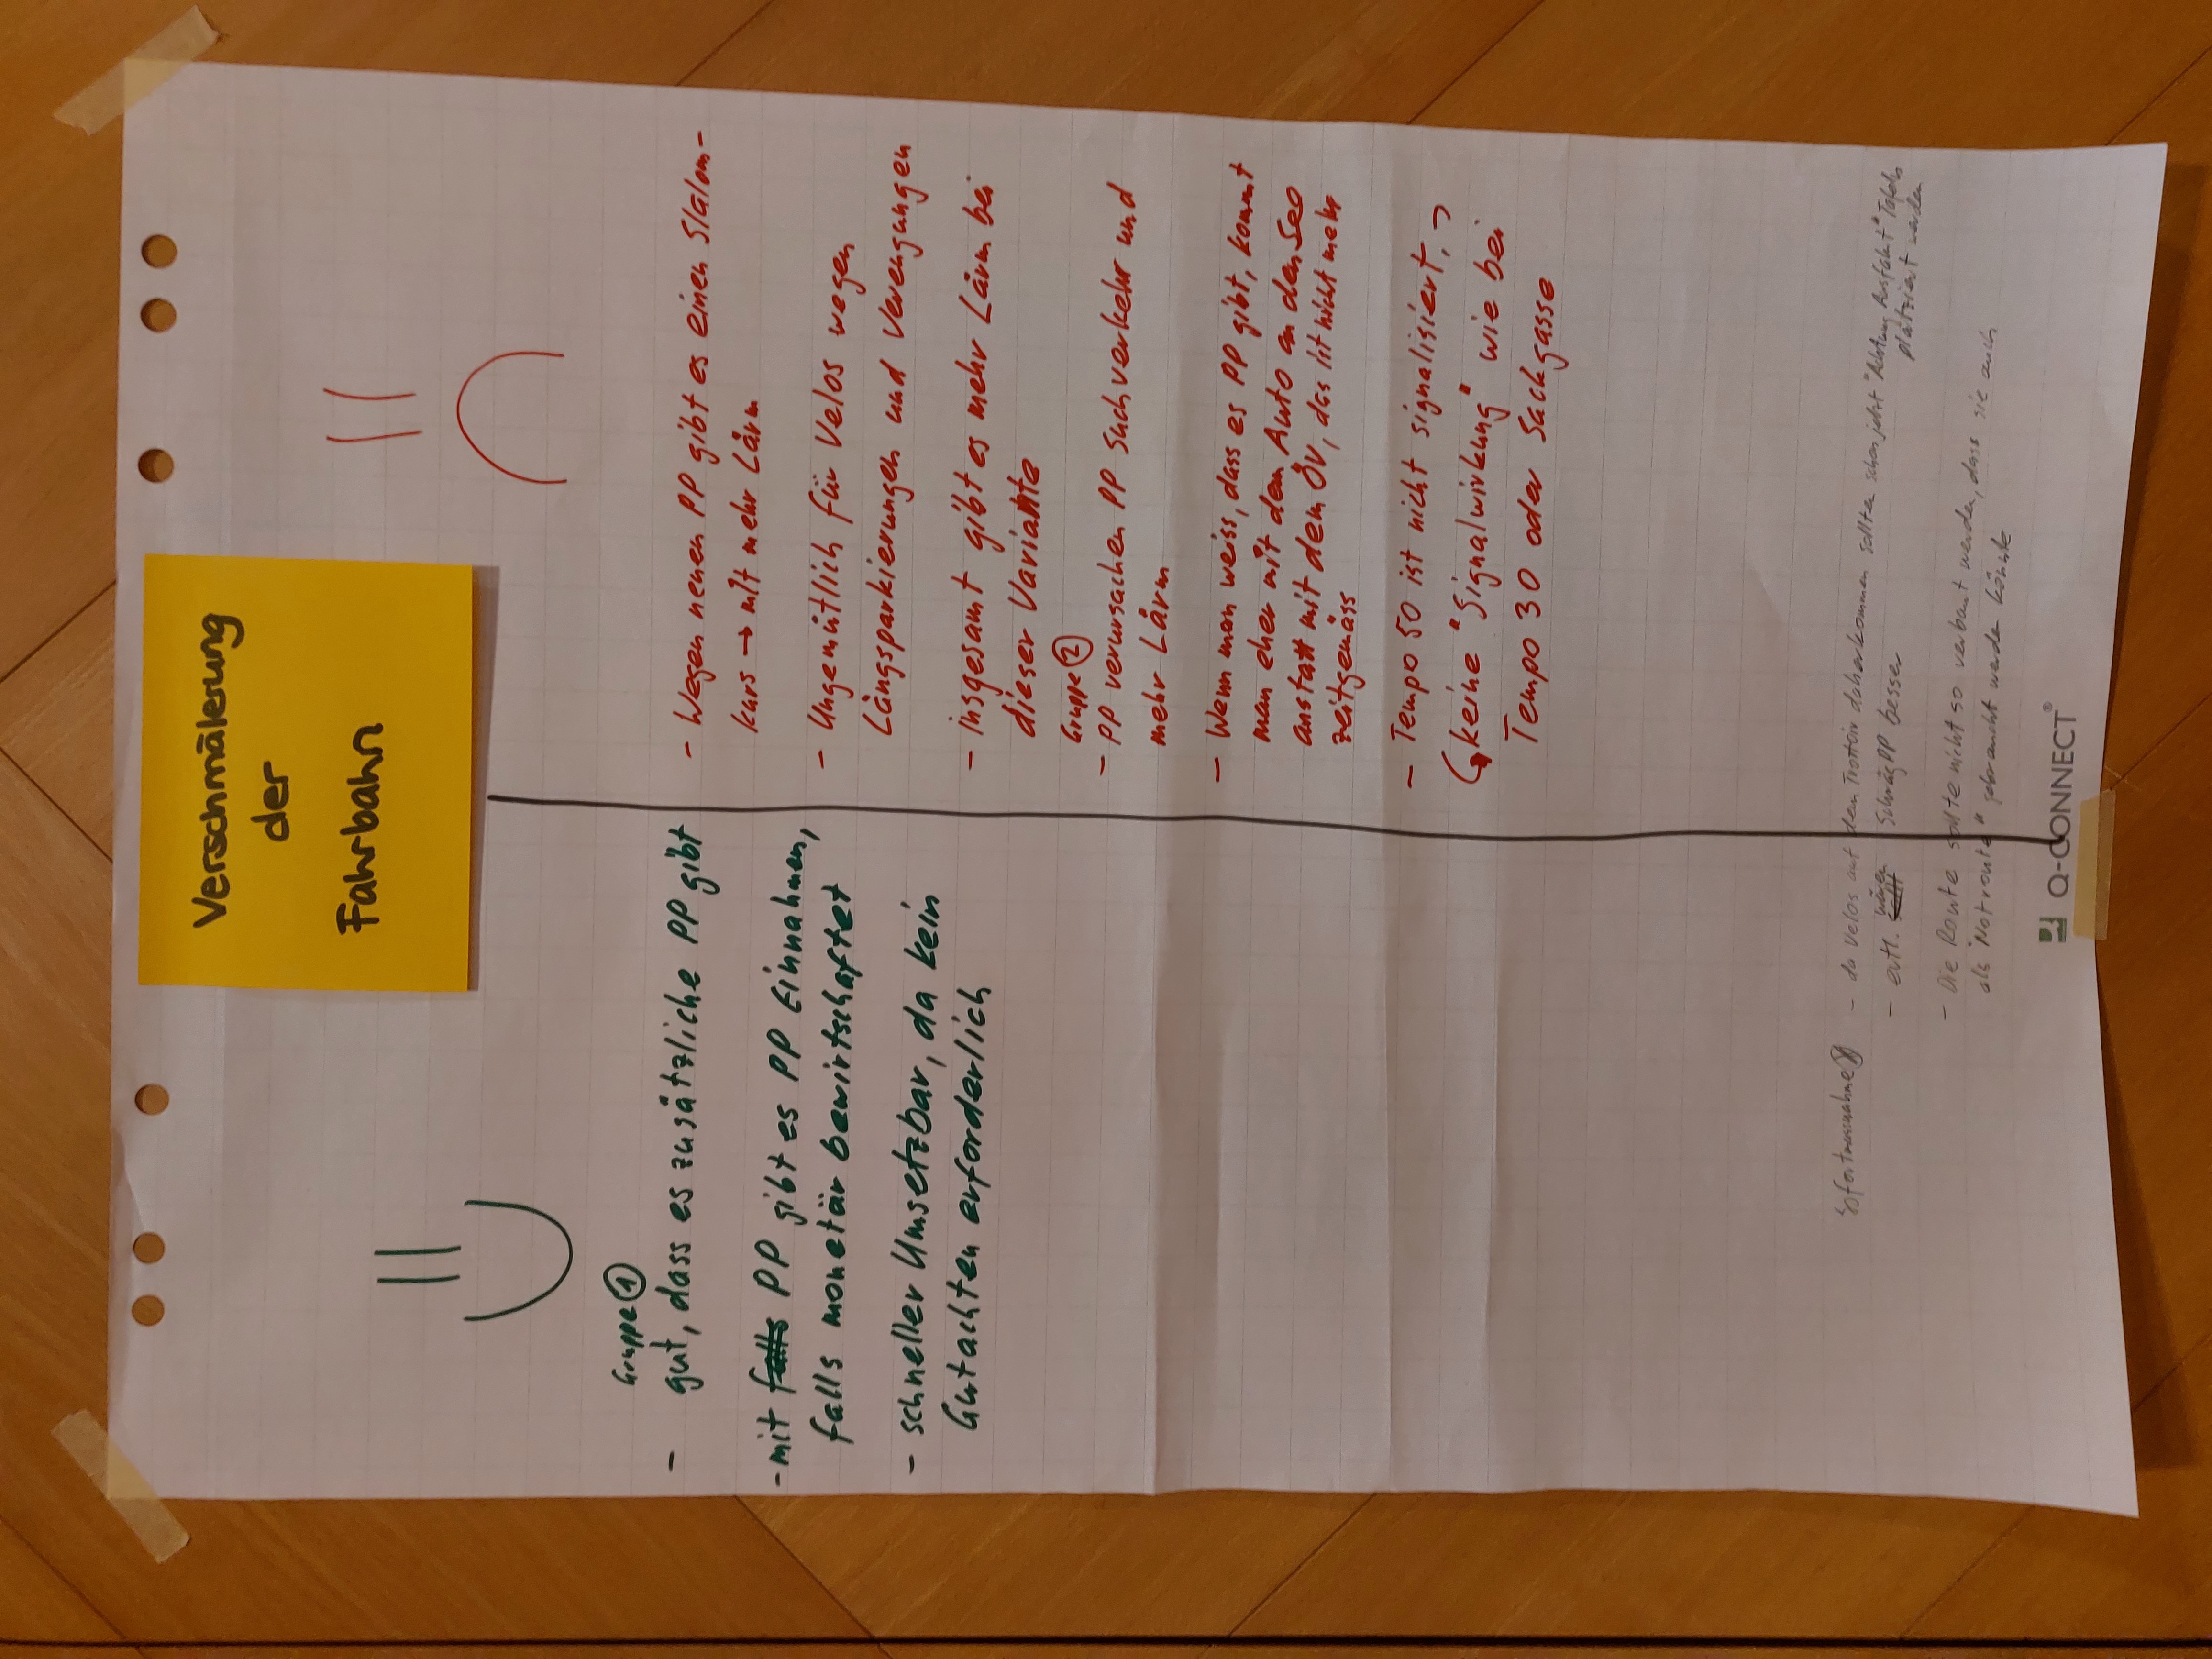 Verschmälerung
der
Fahrbahn
Gruppe 1
- gut, dass es zusätzliche PP gibt
- mit falls PP gibt es PP Einnahmen,
falls monetär bewirtschaftet
- schneller Umsetzbar, da kein
Gutachten erforderlich
- Wegen neuen PP gibt es einen Slalom-
kurs → mit mehr Lärm
- Ungemütlich für Velos wegen
Längsparkierungen und Verengungen
- insgesamt gibt es mehr Lärm bei
dieser Variante
Gruppe 2
- PP verursachen PP Suchverkehr und
mehr Lärm
- Wenn man weiss, dass es PP gibt, kommt
man eher mit dem Auto an den See
anstatt mit dem ÖV, das ist nicht mehr
zeitgemäss
- Tempo 50 ist nicht signalisiert, →
↳ keine "Signalwirkung" wie bei
Tempo 30 oder Sackgasse
Sofortmassnahme - da Velos auf dem Trottoir daherkommen sollten schon jetzt "Achtung Ausfahrt" Tafeln
platziert werden
- evtl. wären Schräg PP besser
- Die Route sollte nicht so verbaut werden, dass sie auch
als "Notroute" gebraucht werden könnte
Q-CONNECT®